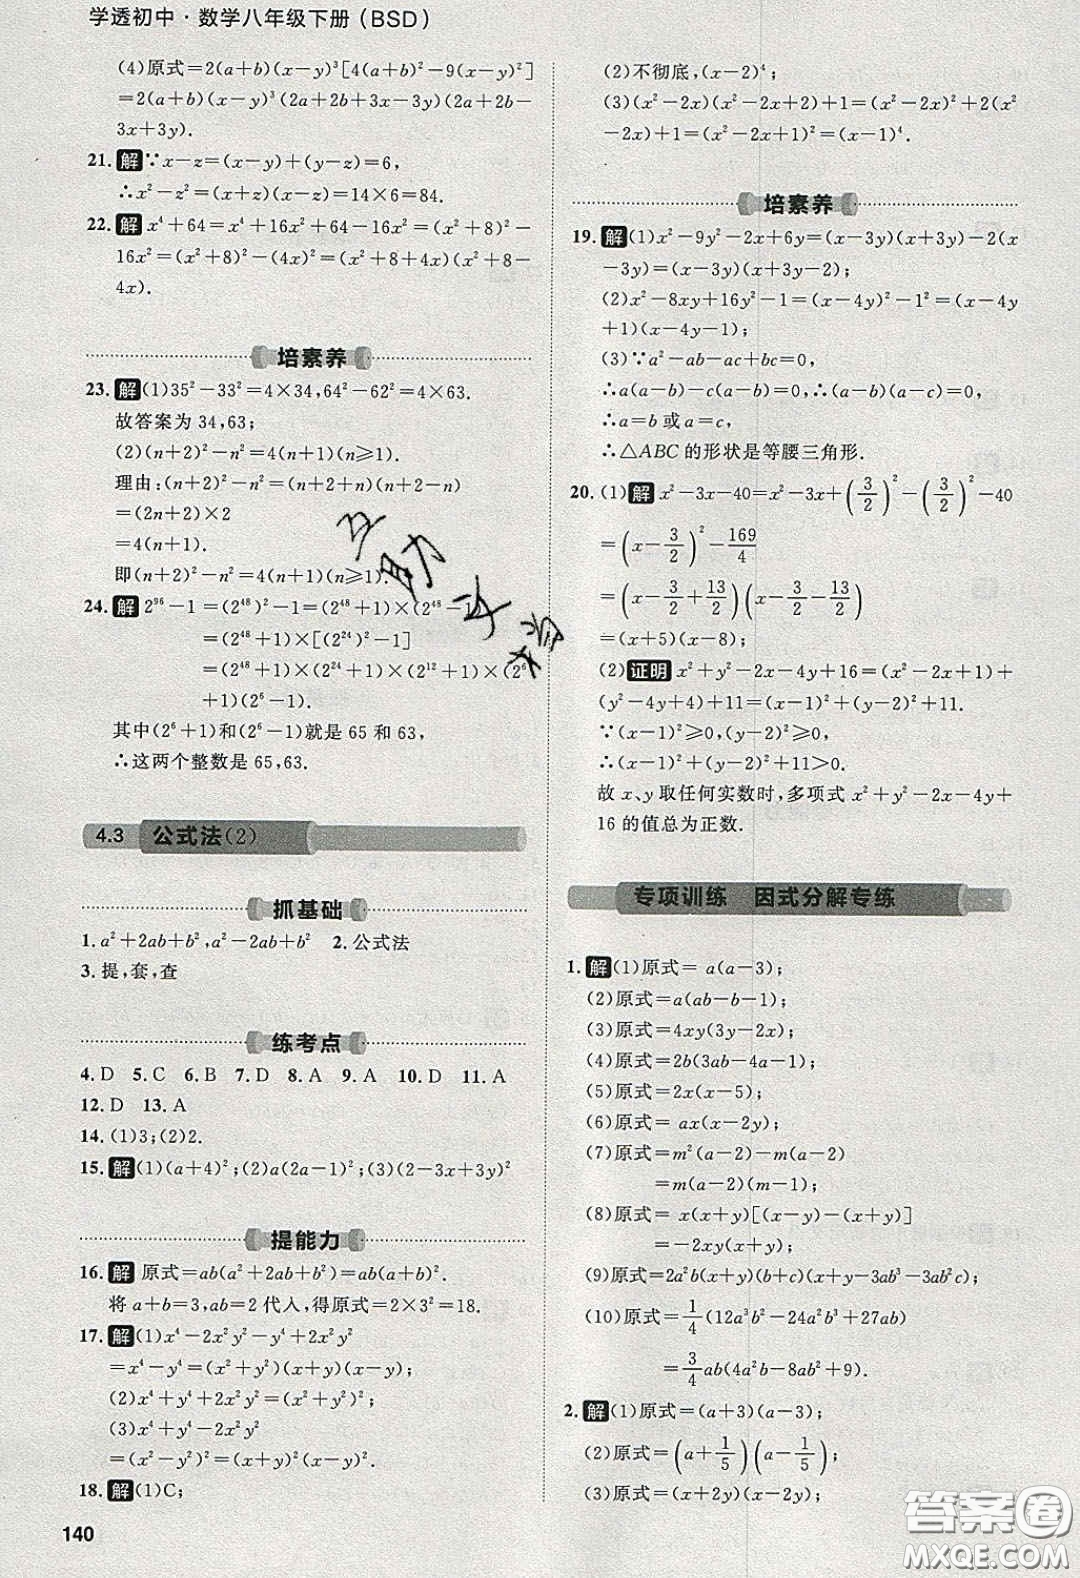 学透初中·数学八年级下册(BSD)
(4)原式=2(a+b)(x-y)³[4(a+b)²-9(x-y)²]
=2(a+b)(x-y)³(2a+2b+3x-3y)(2a+2b-
3x+3y).
21.解∵x-z=(x-y)+(y-z)=6,
∴x²-z²=(x+z)(x-z)=14×6=84.
22.解x⁴+64=x⁴+16x²+64-16x²=(x²+8)²-
16x²=(x²+8)²-(4x)²=(x²+8+4x)(x²+8-
4x).
培素养
23.解(1)35²-33²=4×34,64²-62²=4×63.
故答案为34,63;
(2)(n+2)²-n²=4(n+1)(n≥1).
理由:(n+2)²-n²=(n+2+n)(n+2-n)
=(2n+2)×2
=4(n+1).
即(n+2)²-n²=4(n+1)(n≥1).
24.解2⁹⁶-1=(2⁴⁸)²-1=(2⁴⁸+1)×(2⁴⁸-1)
=(2⁴⁸+1)×[(2²⁴)²-1]
=(2⁴⁸+1)×(2²⁴+1)×(2¹²+1)×(2⁶
+1)(2⁶-1).
其中(2⁶+1)和(2⁶-1)就是65和63,
∴这两个整数是65,63.
4.3 公式法(2)
抓基础
1.a²+2ab+b²,a²-2ab+b² 2.公式法
3.提,套,查
练考点
4.D 5.C 6.B 7.D 8.A 9.A 10.D 11.A
12.D 13.A
14.(1)3;(2)2.
15.解(1)(a+4)²;(2)a(2a-1)²;(3)(2-3x+3y)²
提能力
16.解 原式=ab(a²+2ab+b²)=ab(a+b)².
将a+b=3,ab=2代入,得原式=2×3²=18.
17.解(1)x⁴-2x²y²-y⁴+2x²y²
=x⁴-y⁴=(x²+y²)(x+y)(x-y);
(2)x⁴+y⁴+2x²y²=(x²+y²)²;
(3)x⁴+y⁴-2x²y²
=(x²-y²)²=(x+y)²(x-y)².
18.解(1)C;
140
(2)不彻底,(x-2)⁴;
(3)(x²-2x)(x²-2x+2)+1=(x²-2x)²+2(x²
-2x)+1=(x²-2x+1)²=(x-1)⁴.
培素养
19.解(1)x²-9y²-2x+6y=(x-3y)(x+3y)-2(x
-3y)=(x-3y)(x+3y-2);
(2)x²-8xy+16y²-1=(x-4y)²-1²=(x-4y
+1)(x-4y-1);
(3)∵a²-ab-ac+bc=0,
∴a(a-b)-c(a-b)=0,∴(a-b)(a-c)=0,
∴a=b或a=c,
∴△ABC的形状是等腰三角形.
20.(1)解x²-3x-40=x²-3x+(3/2)²-(3/2)²-40
=(x-3/2)²-169/4
=(x-3/2+13/2)(x-3/2-13/2)
=(x+5)(x-8);
(2)证明x²+y²-2x-4y+16=(x²-2x+1)+
(y²-4y+4)+11=(x-1)²+(y-2)²+11.
∵(x-1)²≥0,(y-2)²≥0,
∴(x-1)²+(y-2)²+11>0.
故x、y取任何实数时,多项式x²+y²-2x-4y+
16的值总为正数.
专项训练 因式分解专练
1.解(1)原式=a(a-3);
(2)原式=a(ab-b-1);
(3)原式=4xy(3y-2x);
(4)原式=2b(3ab-4a-1);
(5)原式=2x(x-5);
(6)原式=ax(x-2y);
(7)原式=m²(a-2)-m(a-2)
=m(a-2)(m-1);
(8)原式=x(x+y)[(x-y)-(x+y)]
=-2xy(x+y);
(9)原式=2a²b(x+y)(b+c)(x+y-3ab³-3ab²c);
(10)原式=1/4(12a³b²-24a²b³+27ab)
=3/4ab(4a²b-8ab²+9).
2.解(1)原式=(a+3)(a-3);
(2)原式=(a+1/5)(a-1/5);
(3)原式=(x+2y)(x-2y);
答案圈
MXQE.COM